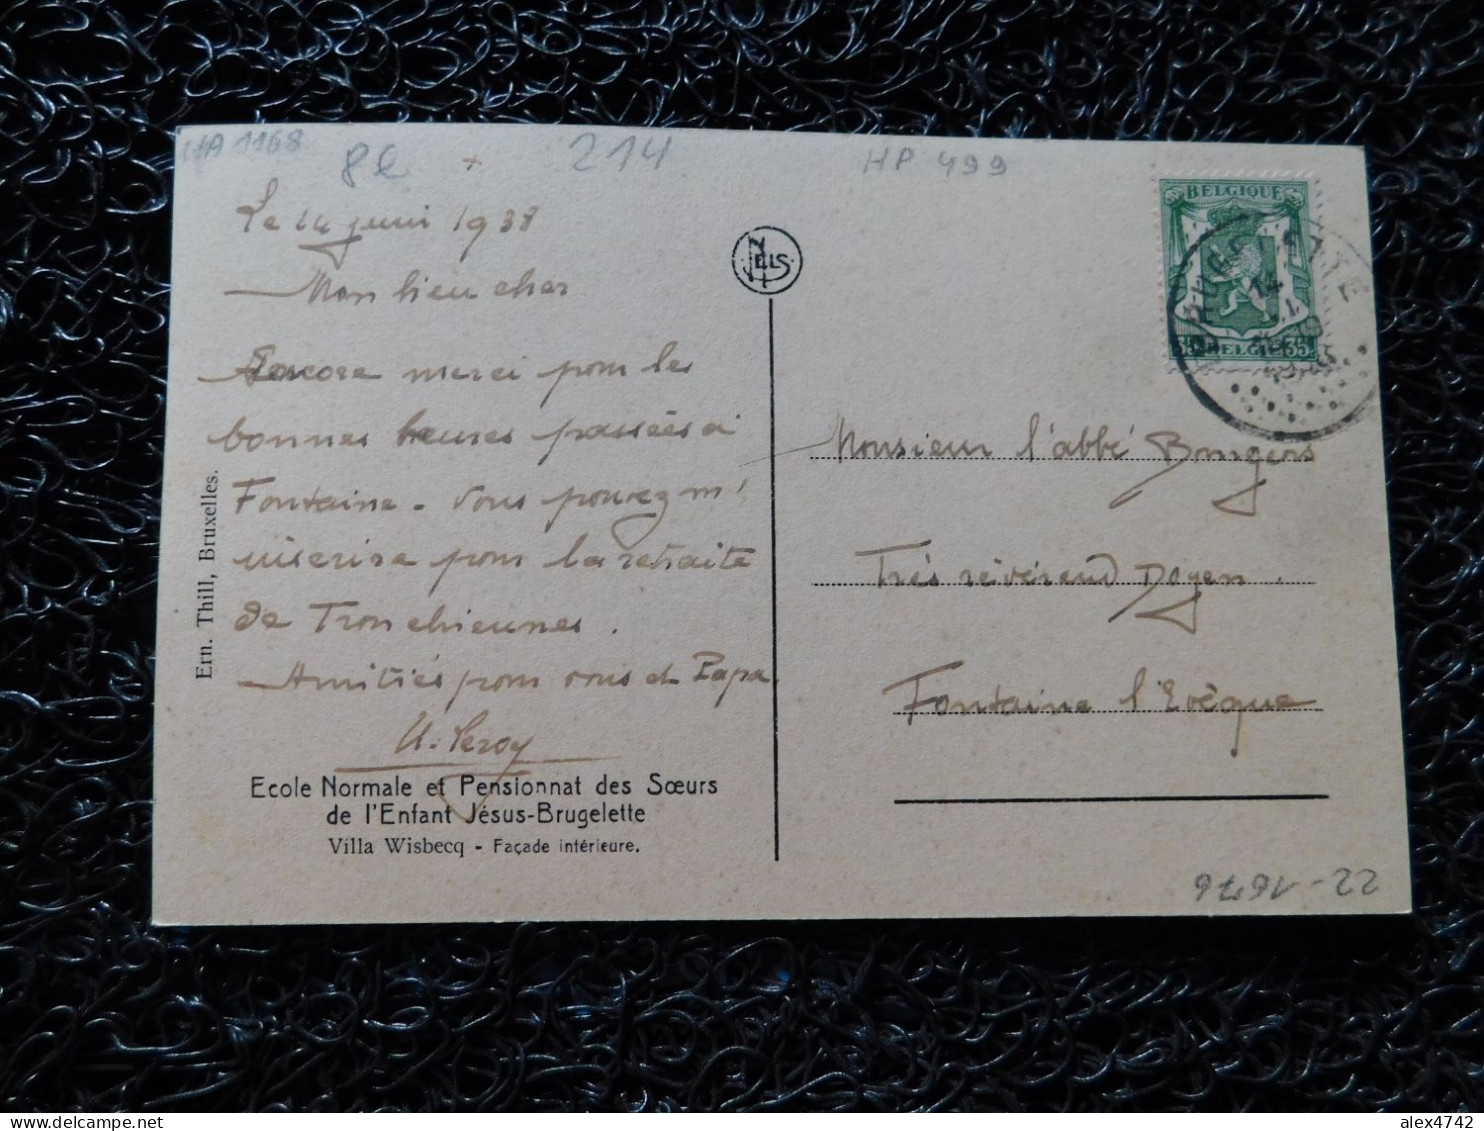 HA 1168
8e + 214
HP 499
Le 14 juin 1938
Mon bien cher
Encore merci pour les
bonnes heures passées à
Fontaine - Vous pouvez m'
inscrire pour la retraite
de Tronchiennes.
Amitiés pour vous et Papa
Leroy
Ern. Thill, Bruxelles.
Ecole Normale et Pensionnat des Sœurs
de l'Enfant Jésus-Brugelette
Villa Wisbecq - Façade intérieure.
NELS
BELGIQUE
35 BELGIE 35
Monsieur l'abbé
Très révérend Doyen
Fontaine l'Evêque
22-1676
alex4742